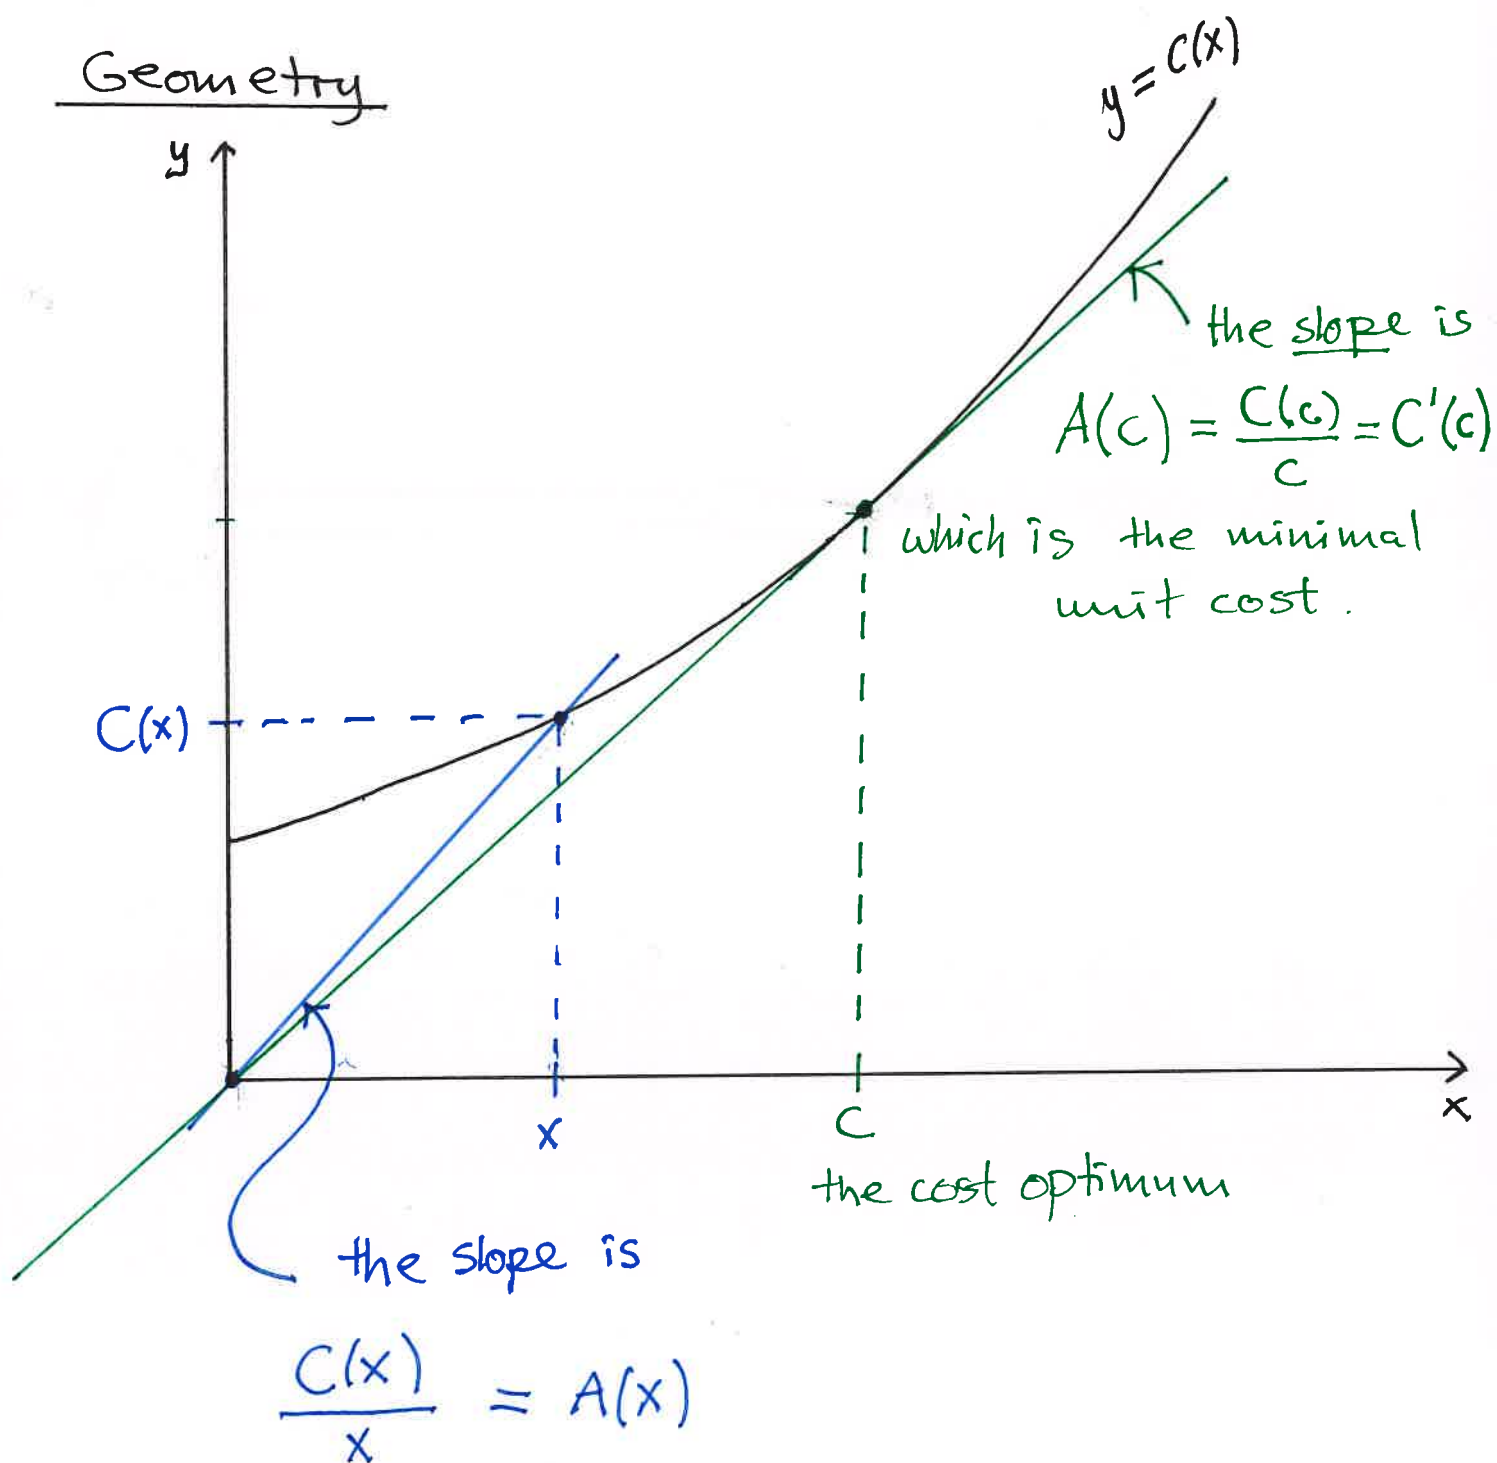 Geometry
y = C(x)
y
the slope is
A(c) = C(c)/c = C'(c)
which is the minimal
unit cost.
C(x)
x
x
c
the cost optimum
the slope is
C(x)/x = A(x)